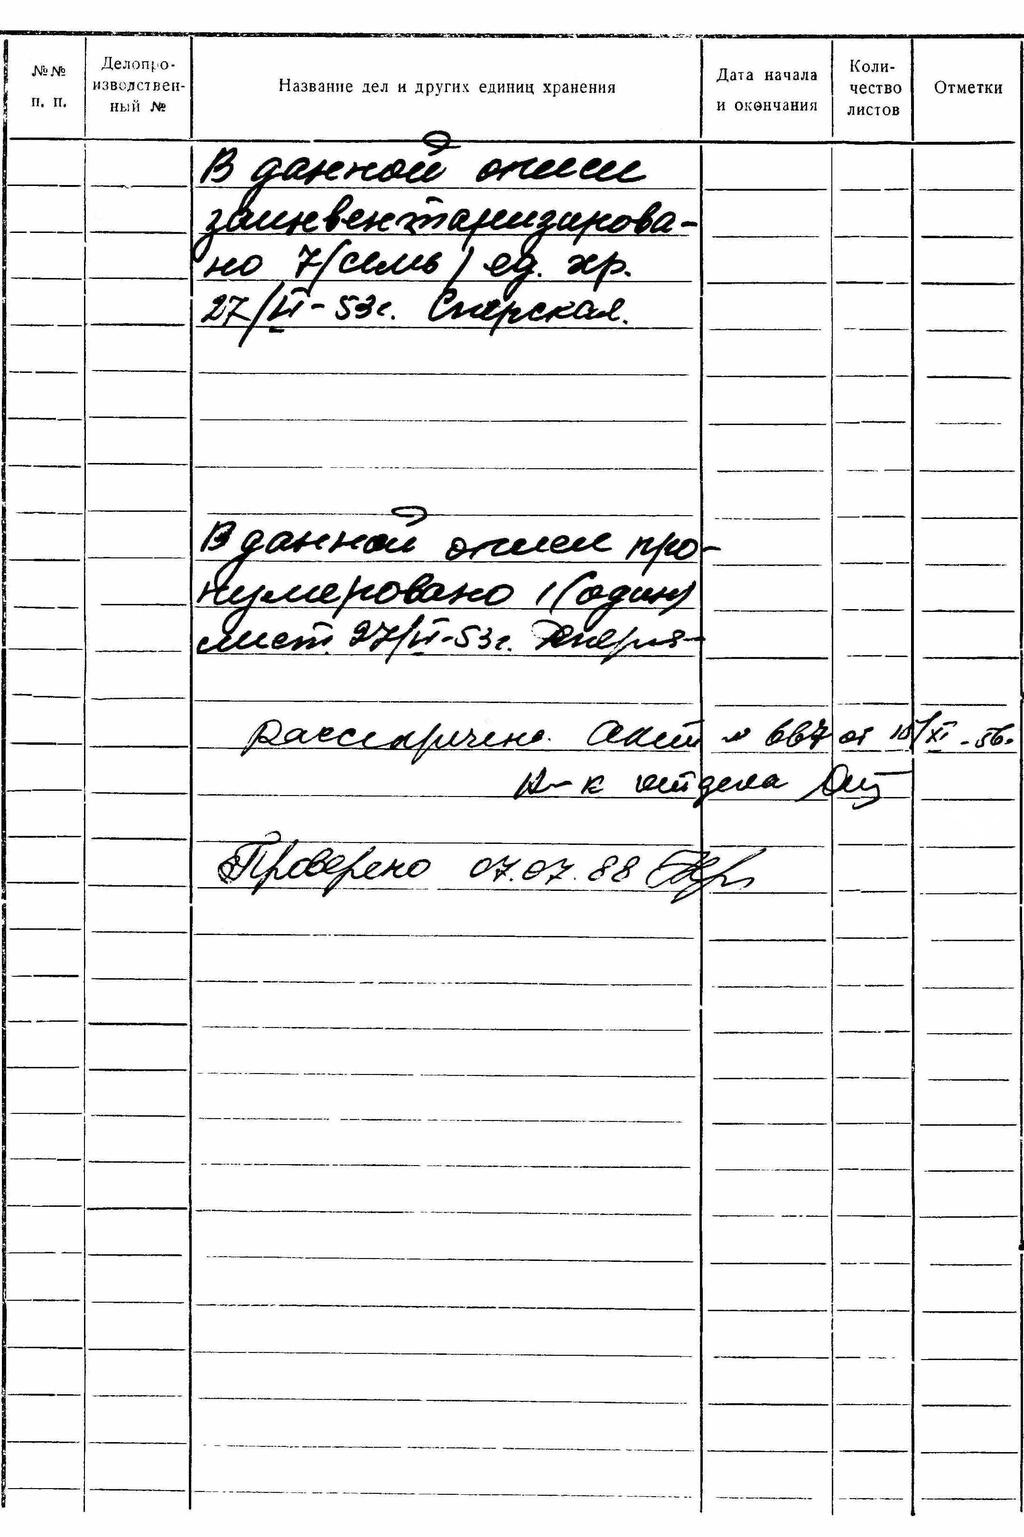 №№ п. п.
Делопро-
изводствен-
ный №
Название дел и других единиц хранения
Дата начала
и окончания
Коли-
чество
листов
Отметки
В данной описи
заинвентаризирова-
но 7/семь/ ед. хр.
27/VI-53г.
В данной описи про-
нумеровано 1(один)
лист. 27/VI-53г.
Рассекречено. Акт № 667 от 15/XI-56.
Н-к отдела
Проверено 07.07.88